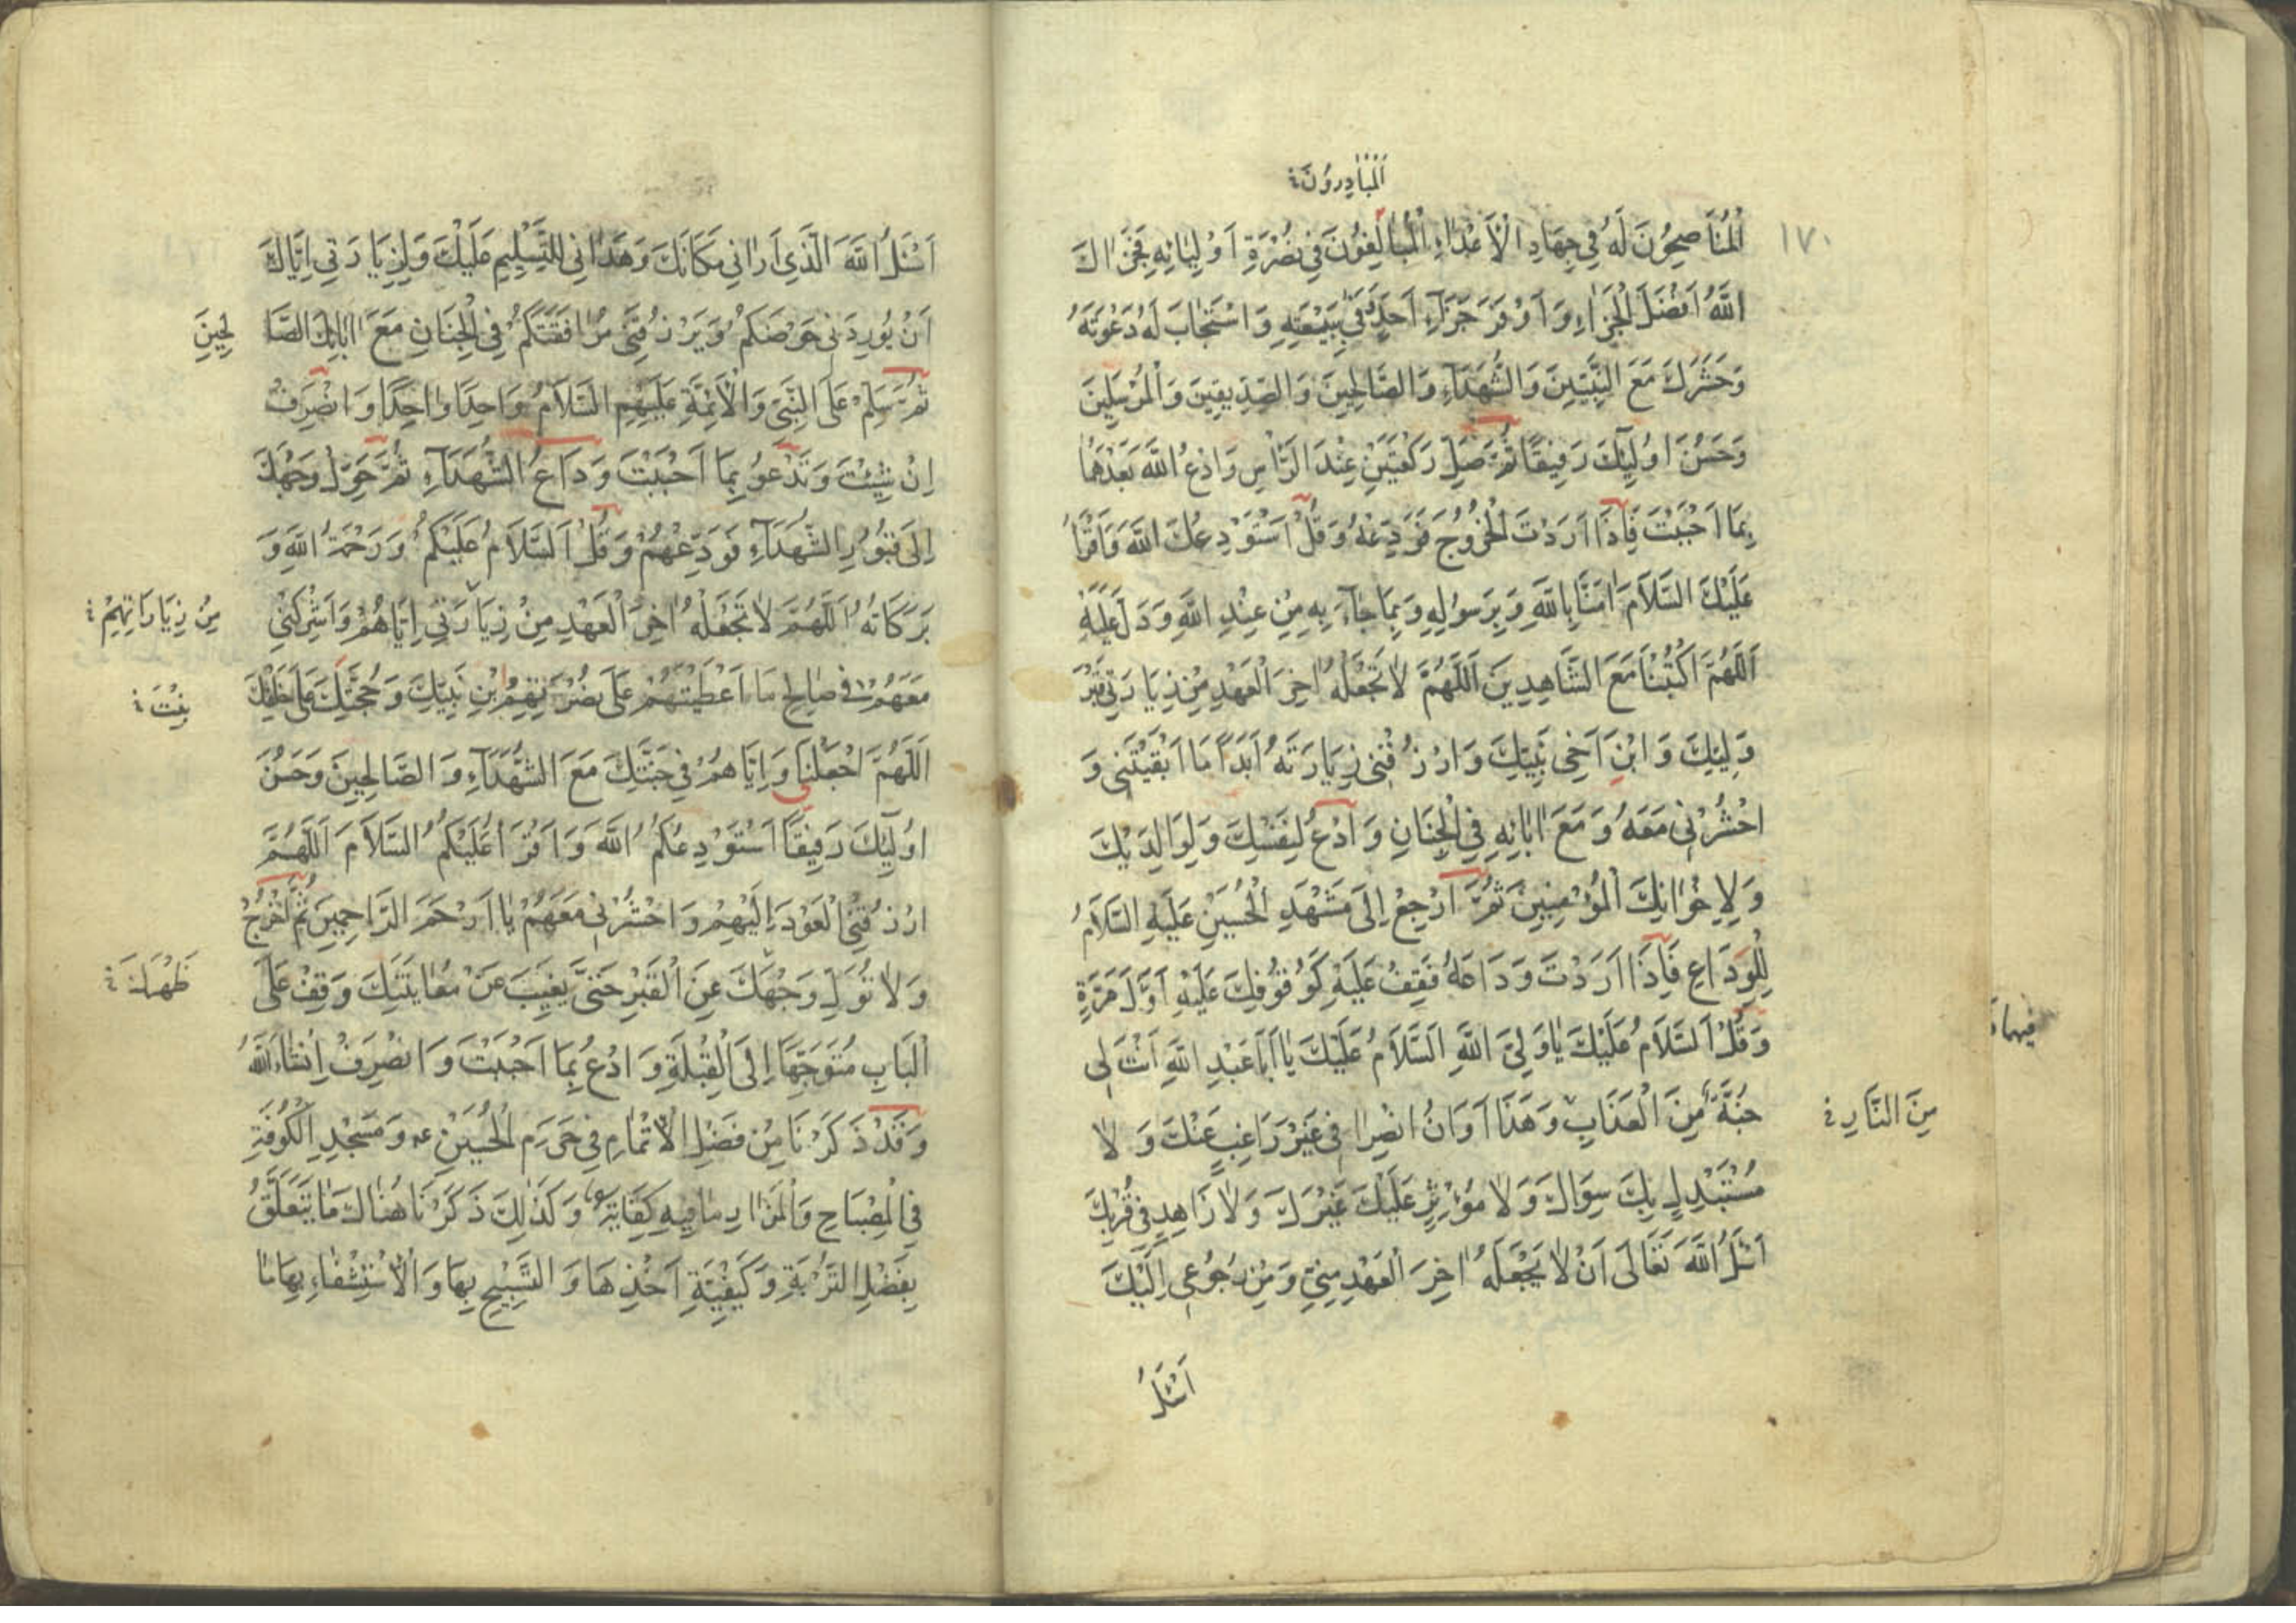 اَلْمُبَادِرُونَ
١٧٠
الْمُنَاصِحُونَ لَهُ فِي جِهَادِ الْاَعْدَاءِ الْمُبَالِغُونَ فِي نُصْرَةِ اَوْلِيَائِهِ فَجَزَاكَ
اللّٰهُ اَفْضَلَ الْجَزَاءِ وَاَوْفَرَ جَزَآءِ اَحَدٍ وَفٰى بِبَيْعَتِهِ وَاسْتَجَابَ لَهُ دَعْوَتَهُ
وَحَشَرَكَ مَعَ النَّبِيّينَ وَالشُّهَدَآءِ وَالصَّالِحِينَ وَالصِّدِّيقِينَ وَالْمُرْسَلِينَ
وَحَسُنَ اُولٰئِكَ رَفِيقًا ثُمَّ صَلِّ رَكْعَتَيْنِ عِنْدَ الرَّاْسِ وَادْعُ اللّٰهَ بَعْدَهُمَا
بِمَا اَحْبَبْتَ فَاِذَا اَرَدْتَ الْخُرُوجَ فَوَدِّعْهُ وَقُلْ اَسْتَوْدِعُكَ اللّٰهَ وَاَقْرَاُ
عَلَيْكَ السَّلَامَ اٰمَنَّا بِاللّٰهِ وَبِرَسُولِهِ وَبِمَا جَآءَ بِهِ مِنْ عِنْدِ اللّٰهِ وَدَلَّ عَلَيْهِ
اَللّٰهُمَّ اكْتُبْنَا مَعَ الشَّاهِدِينَ اَللّٰهُمَّ لَا تَجْعَلْهُ اٰخِرَ الْعَهْدِ مِنْ زِيَارَتِي قَبْرَ
وَلِيِّكَ وَابْنِ اَخِي نَبِيِّكَ وَارْزُقْنِي زِيَارَتَهُ اَبَدًا مَا اَبْقَيْتَنِي وَ
احْشُرْنِي مَعَهُ وَمَعَ اٰبَائِهِ فِي الْجِنَانِ وَادْعُ لِنَفْسِكَ وَلِوَالِدَيْكَ
وَلِاِخْوَانِكَ الْمُؤْمِنِينَ ثُمَّ ارْجِعْ اِلَى مَشْهَدِ الْحُسَيْنِ عَلَيْهِ السَّلَامُ
لِلْوِدَاعِ فَاِذَا اَرَدْتَ وَدَاعَهُ فَقِفْ عَلَيْهِ كَوُقُوفِكَ عَلَيْهِ اَوَّلَ مَرَّةٍ
وَقُلْ اَلسَّلَامُ عَلَيْكَ يَا وَلِيَّ اللّٰهِ اَلسَّلَامُ عَلَيْكَ يَا اَبَا عَبْدِ اللّٰهِ اَنْتَ لِي
جُنَّةٌ مِنَ الْعَذَابِ وَهَذَا اَوَانُ انْصِرَافِي غَيْرَ رَاغِبٍ عَنْكَ وَلَا
مِنَ النَّارِ
مُسْتَبْدِلٍ بِكَ سِوَاكَ وَلَا مُؤْثِرٍ عَلَيْكَ غَيْرَكَ وَلَا زَاهِدٍ فِي قُرْبِكَ
اَسْئَلُ اللّٰهَ تَعَالَى اَنْ لَا يَجْعَلَهُ اٰخِرَ الْعَهْدِ مِنِّي وَمِنْ رُجُوعِي اِلَيْكَ
اَسْئَلُ
فيها
اَسْئَلُ اللّٰهَ الَّذِي اَرَانِي مَكَانَكَ وَهَدَانِي لِلتَّسْلِيمِ عَلَيْكَ وَلِزِيَارَتِي اِيَّاكَ
اَنْ يُورِدَنِي حَوْضَكُمْ وَيَرْزُقَنِي مُرَافَقَتَكُمْ فِي الْجِنَانِ مَعَ اٰبَائِكَ الصَّا
لِحِينَ
ثُمَّ سَلِّمْ عَلَى النَّبِيِّ وَالْاَئِمَّةِ عَلَيْهِمِ السَّلَامُ وَاحِدًا وَاحِدًا وَانْصَرِفْ
اِنْ شِئْتَ وَتَدْعُو بِمَا اَحْبَبْتَ وَدَاعُ الشُّهَدَآءِ ثُمَّ حَوِّلْ وَجْهَكَ
اِلَى قُبُورِ الشُّهَدَآءِ فَوَدِّعْهُمْ وَقُلْ اَلسَّلَامُ عَلَيْكُمْ وَرَحْمَةُ اللّٰهِ وَ
بَرَكَاتُهُ اَللّٰهُمَّ لَا تَجْعَلْهُ اٰخِرَ الْعَهْدِ مِنْ زِيَارَتِي اِيَّاهُمْ وَاَشْرِكْنِي
مِنْ زِيَارَاتِهِمْ
مَعَهُمْ فِي صَالِحِ مَا اَعْطَيْتَهُمْ عَلَى نُصْرَتِهِمُ ابْنَ نَبِيِّكَ وَحُجَّتَكَ عَلَى خَلْقِكَ
بِنْتَ
اَللّٰهُمَّ اجْعَلْنَا وَاِيَّاهُمْ فِي جَنَّتِكَ مَعَ الشُّهَدَآءِ وَالصَّالِحِينَ وَحَسُنَ
اُولٰئِكَ رَفِيقًا اَسْتَوْدِعُكُمُ اللّٰهَ وَاَقْرَاُ عَلَيْكُمُ السَّلَامَ اَللّٰهُمَّ
ارْزُقْنِي الْعَوْدَ اِلَيْهِمْ وَاحْشُرْنِي مَعَهُمْ يَا اَرْحَمَ الرَّاحِمِينَ ثُمَّ اخْرُجْ
وَلَا تُوَلِّ وَجْهَكَ عَنِ الْقَبْرِ حَتَّى يَغِيبَ عَنْ مُعَايَنَتِكَ وَقِفْ عَلَى
ظَهْرَكَ
الْبَابِ مُتَوَجِّهًا اِلَى الْقِبْلَةِ وَادْعُ بِمَا اَحْبَبْتَ وَانْصَرِفْ اِنْشَاءَ اللّٰهُ
وَقَدْ ذَكَرْنَا مِنْ فَضْلِ الْاِتْمَامِ فِي حَرَمِ الْحُسَيْنِ ع وَمَسْجِدِ الْكُوفَةِ
فِي الْمِصْبَاحِ وَالْمَزَارِ مَا فِيهِ كِفَايَةٌ وَكَذٰلِكَ ذَكَرْنَا هُنَاكَ مَا يَتَعَلَّقُ
بِفَضْلِ التُّرْبَةِ وَكَيْفِيَّةِ اَخْذِهَا وَالتَّسْبِيحِ بِهَا وَالْاِسْتِشْفَاءِ بِهَا مَا